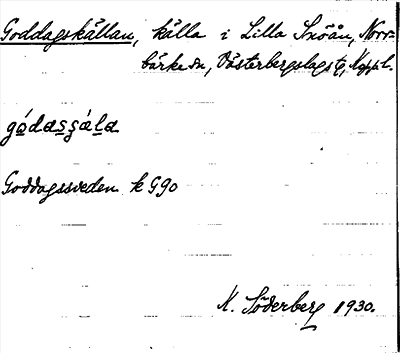 Goddagskällan, källa i Lilla Snöån, Norr-
bärke sn, Västerbergslags tg, Kppl.
gódasɟǽla
Goddagssveden k G90
K. Söderberg 1930.